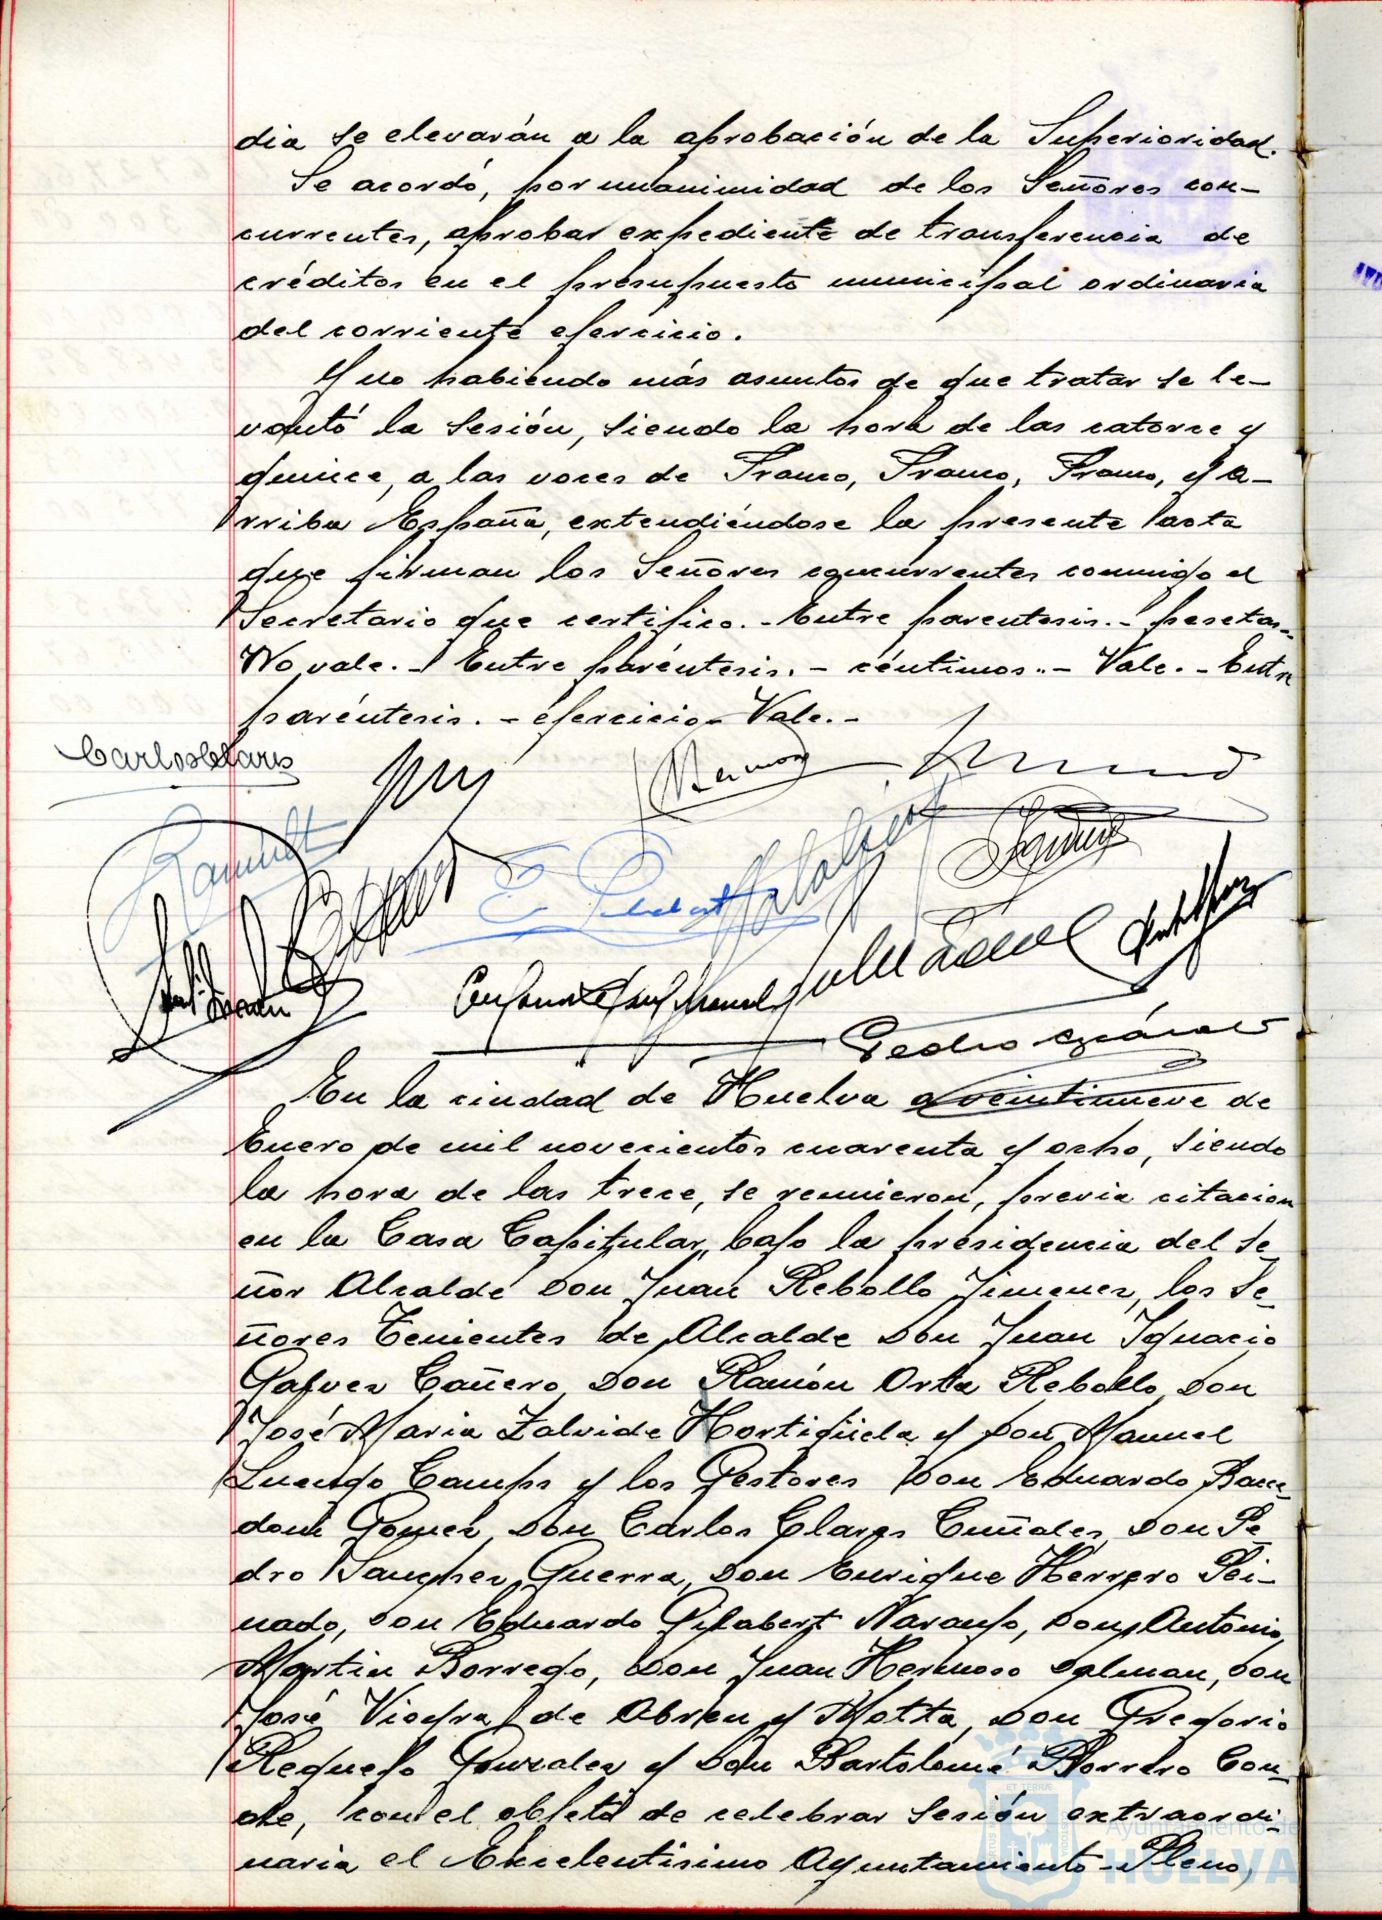 dia se elevarán a la aprobación de la Superioridad.
Se acordó, por unanimidad de los Señores con-
currentes, aprobar expediente de transferencia de
créditos en el presupuesto municipal ordinario
del corriente ejercicio.
Y no habiendo más asuntos de que tratar se le-
vantó la sesión, siendo la hora de las catorce y
quince, a las voces de Franco, Franco, Franco, y A-
rriba España, extendiéndose la presente acta
que firman los Señores concurrentes conmigo el
Secretario que certifico.- Entre parentesis.- pesetas.-
No vale.- Entre paréntesis.- céntimos.- Vale.- Entre
paréntesis.- ejercicio- Vale.-
Carlos Clares
E. Gilabert
En la ciudad de Huelva a veintinueve de
Enero de mil novecientos cuarenta y ocho, siendo
la hora de las trece, se reunieron, previa citacion
en la Casa Capitular, bajo la presidencia del Se-
ñor Alcalde Don Juan Rebollo Jimenez, los Se-
ñores Tenientes de Alcalde Don Juan Ignacio
Galvez Cañero, Don Ramón Orta Rebollo, Don
José Maria Zalvide Hortigüela y Don Manuel
Luengo Camps y los Gestores Don Eduardo
Gomez, Don Carlos Clares Cuñales, Don Pe-
dro Sanchez Guerra, Don Enrique Herrero Pei-
nado, Don Eduardo Gilabert Naranjo, Don Antonio
Martin Borrego, Don Juan Hermoso Dalman, Don
José Vieyra de Abreu y Motta, Don Gregorio
Requejo Gonzalez y Don Bartolomé Borrero Con-
de, con el objeto de celebrar sesión extraordi-
naria el Excelentisimo Ayuntamiento-Pleno,
Ayuntamiento de
HUELVA